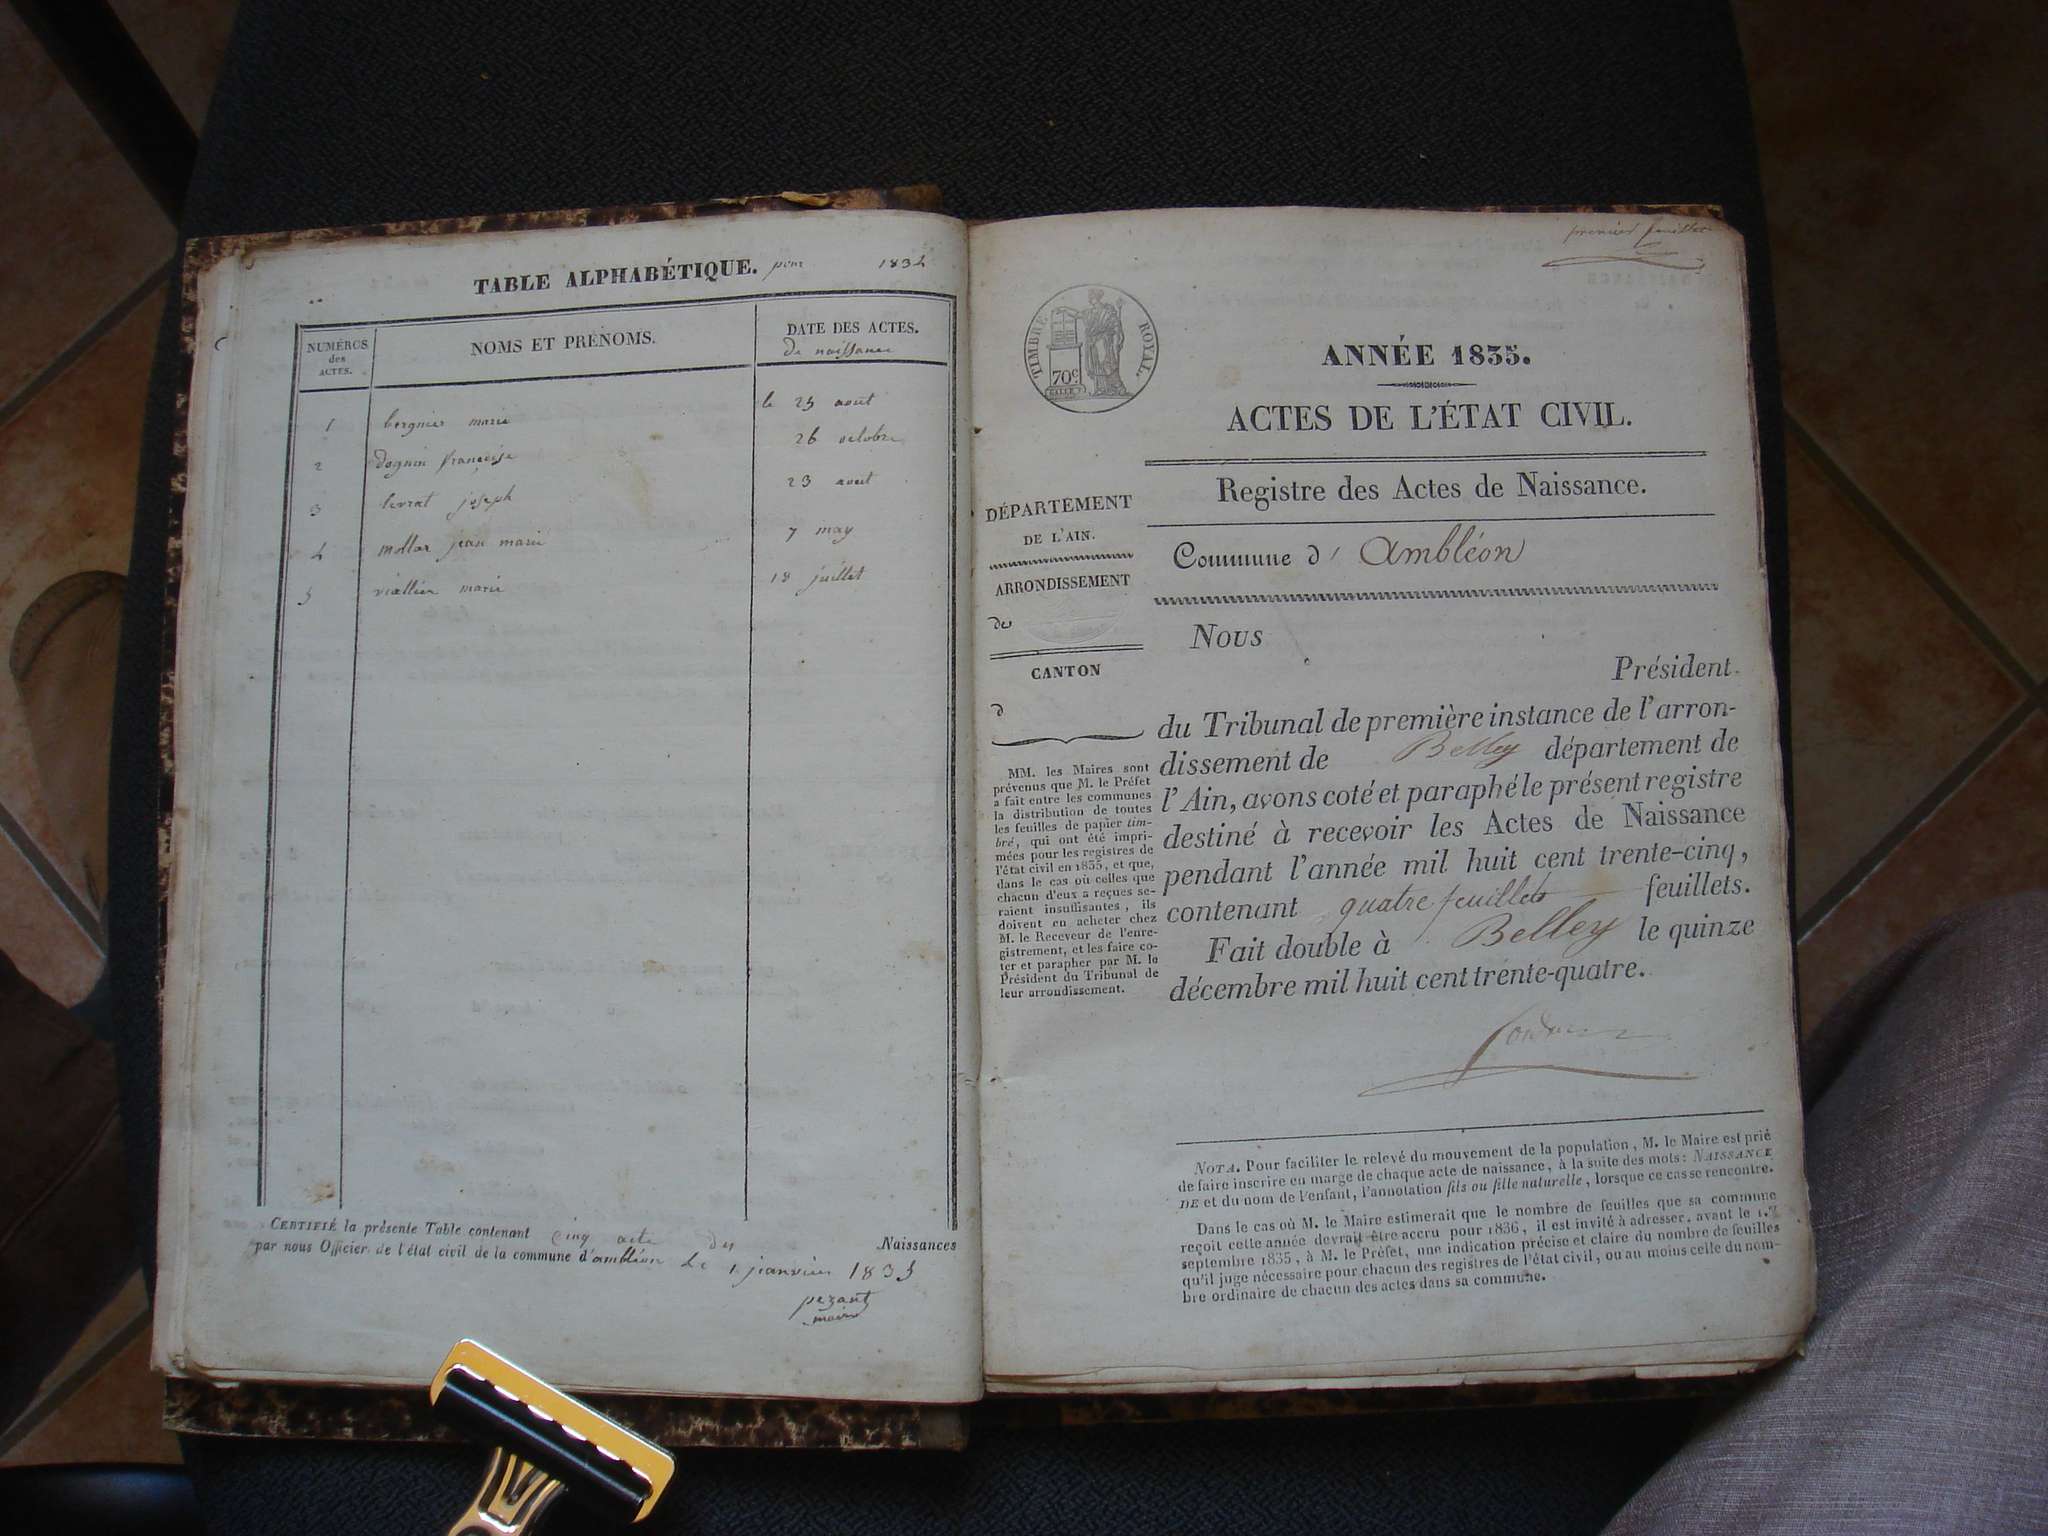 TABLE ALPHABÉTIQUE. pour 1834
NUMÉROS des ACTES.
NOMS ET PRÉNOMS.
DATE DES ACTES.
de naissance
1 bergnier marie le 25 aout
2 dognin françoise 26 octobre
3 levrat joseph 23 aout
4 mollar jean marie 7 may
5 viallier marie 18 juillet
CERTIFIÉ la présente Table contenant cinq acte des Naissances
par nous Officier de l'état civil de la commune d'ambléon Le 1 janvier 1835
pezant
maire
premier feuillet
TIMBRE ROYAL.
70c
ANNÉE 1835.
ACTES DE L'ÉTAT CIVIL.
Registre des Actes de Naissance.
Commune d' Ambléon
DÉPARTEMENT
DE L'AIN.
ARRONDISSEMENT
de
CANTON
d
MM. les Maires sont
prévenus que M. le Préfet
a fait entre les communes
la distribution de toutes
les feuilles de papier tim-
bré, qui ont été impri-
mées pour les registres de
l'état civil en 1835, et que,
dans le cas où celles que
chacun d'eux a reçues se-
raient insuffisantes, ils
doivent en acheter chez
M. le Receveur de l'enre-
gistrement, et les faire co-
ter et parapher par M. le
Président du Tribunal de
leur arrondissement.
Nous
Président
du Tribunal de première instance de l'arron-
dissement de Belley département de
l'Ain, avons coté et paraphé le présent registre
destiné à recevoir les Actes de Naissance
pendant l'année mil huit cent trente-cinq,
contenant quatre feuillets feuillets.
Fait double à Belley le quinze
décembre mil huit cent trente-quatre.
NOTA. Pour faciliter le relevé du mouvement de la population, M. le Maire est prié
de faire inscrire en marge de chaque acte de naissance, à la suite des mots: NAISSANCE
DE et du nom de l'enfant, l'annotation fils ou fille naturelle, lorsque ce cas se rencontre.
Dans le cas où M. le Maire estimerait que le nombre de feuilles que sa commune
reçoit cette année devrait être accru pour 1836, il est invité à adresser, avant le 1.er
septembre 1835, à M. le Préfet, une indication précise et claire du nombre de feuilles
qu'il juge nécessaire pour chacun des registres de l'état civil, ou au moins celle du nom-
bre ordinaire de chacun des actes dans sa commune.